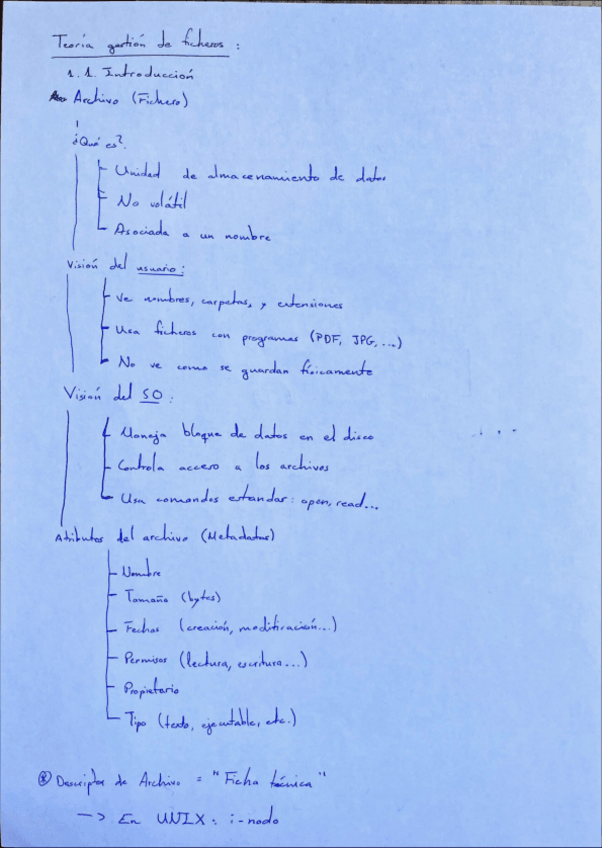 Teoría gestión de ficheros :
1.1. Introducción
Archivo (Fichero)
¿Qué es?
Unidad de almacenamiento de datos
No volátil
Asociada a un nombre
Visión del usuario :
Ve nombres, carpetas, y extensiones
Usa ficheros con programas (PDF, JPG, ...)
No ve como se guardan físicamente
Visión del SO :
Maneja bloque de datos en el disco
Controla acceso a los archivos
Usa comandos estandar : open, read...
Atributos del archivo (Metadatos)
Nombre
Tamaño (bytes)
Fechas (creación, modificación...)
Permisos (lectura, escritura...)
Propietario
Tipo (texto, ejecutable, etc.)
* Descriptor de Archivo = "Ficha técnica"
--> En UNIX : i-nodo